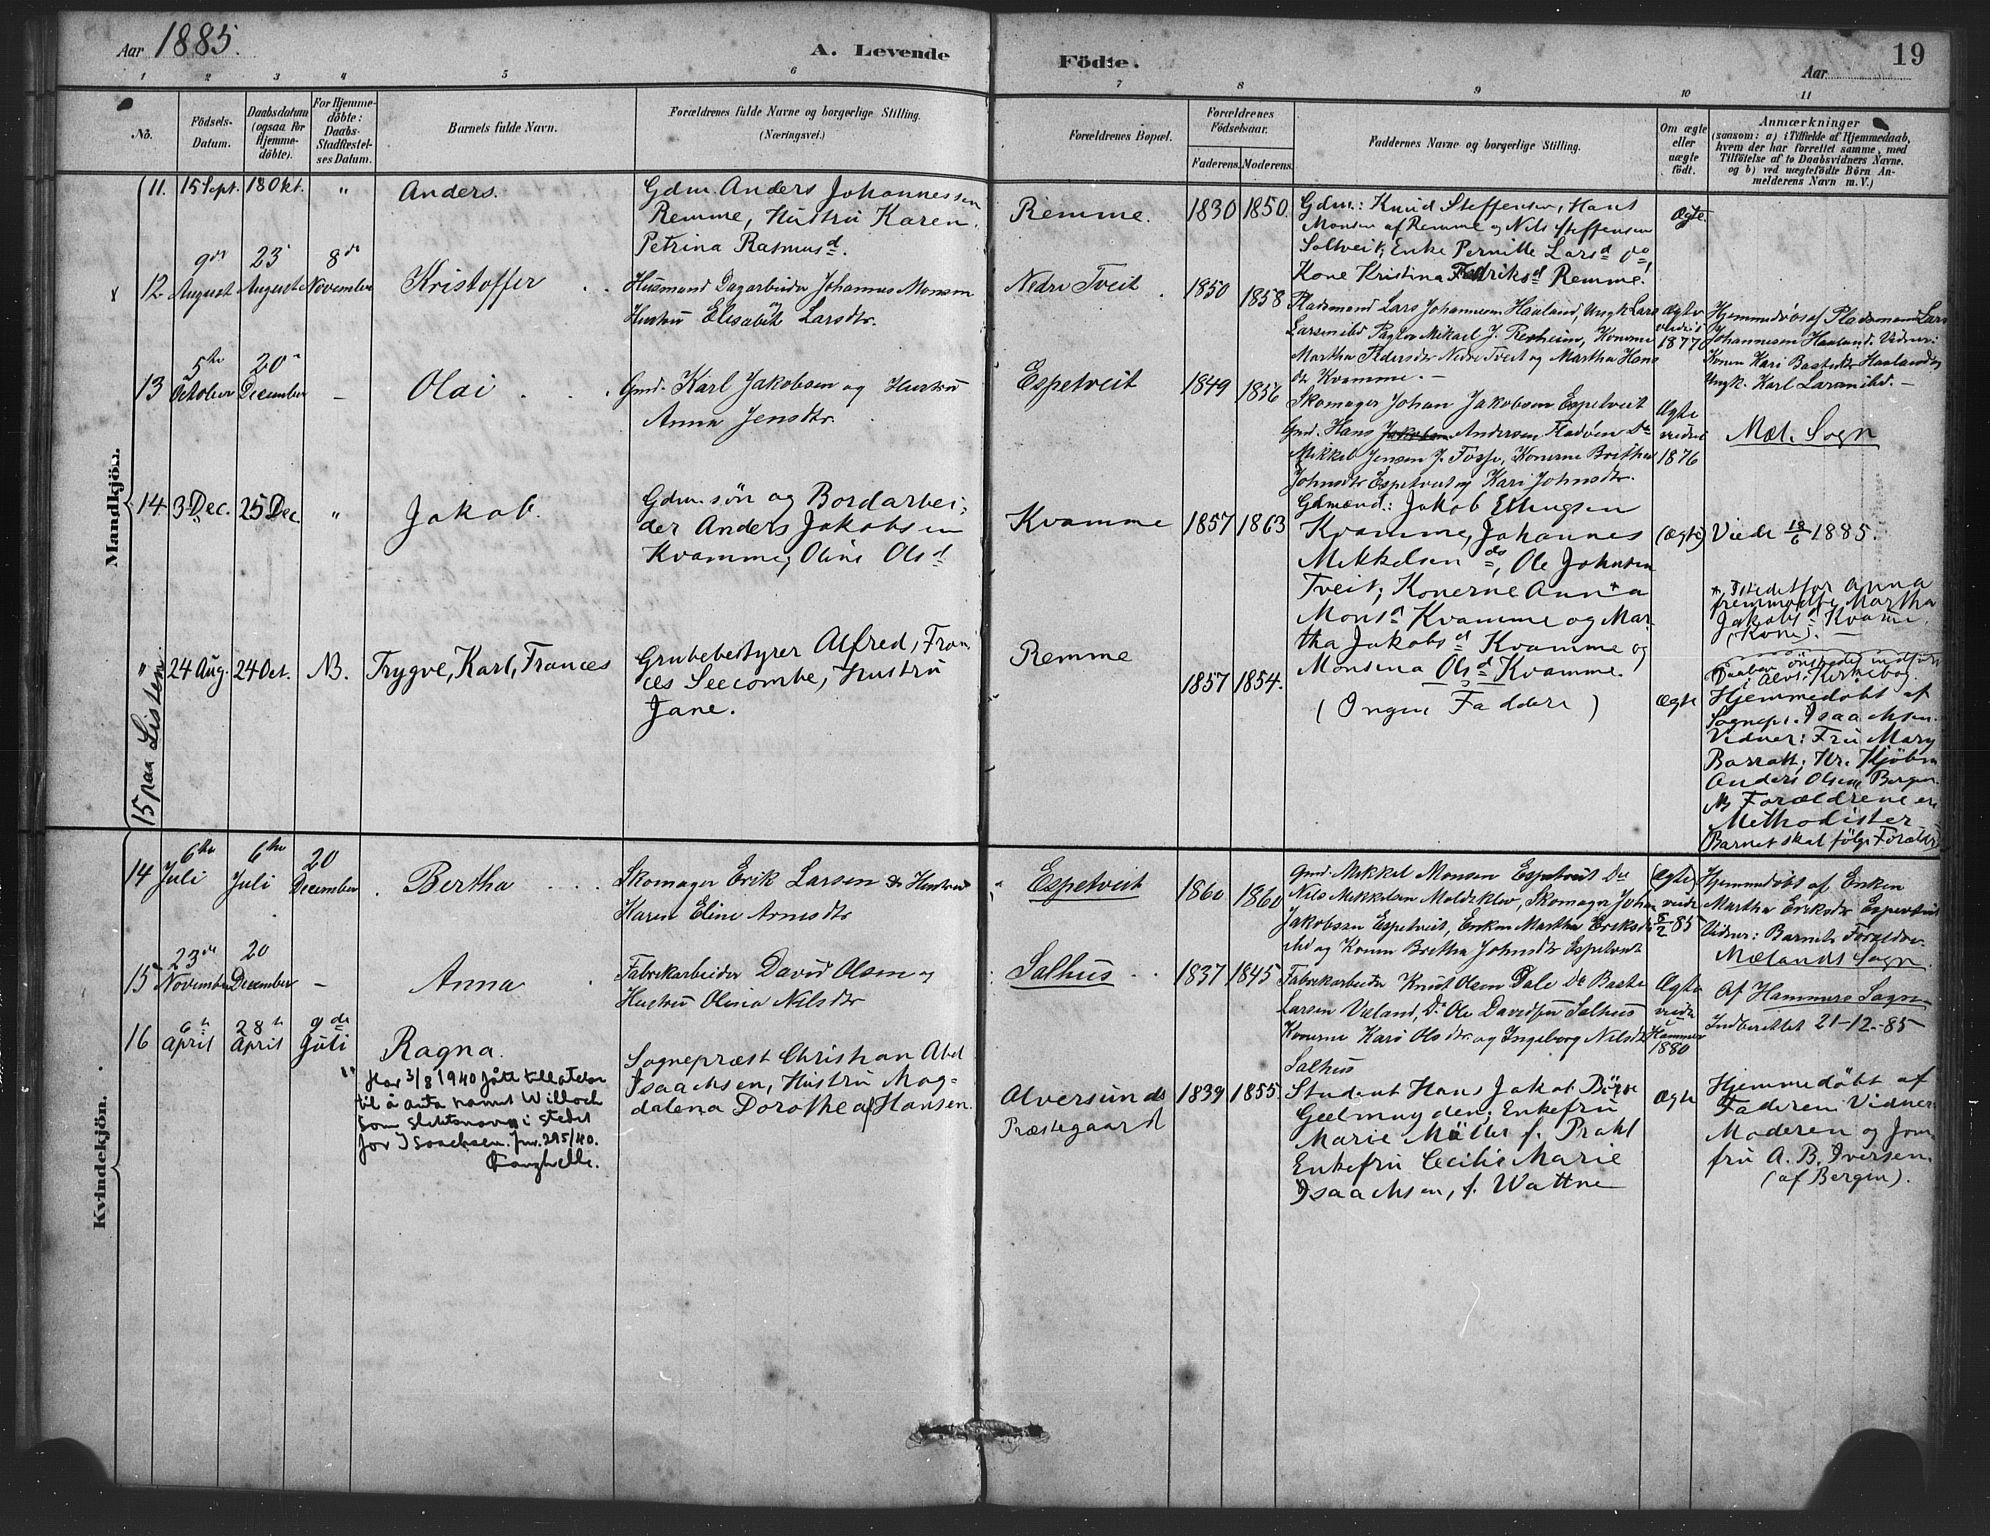 Aar 1885.
A. Levende
Födte.
Aar
19
1 2 3 4 5 6
7 8 9 10 11
No.
Födsels-
Datum.
Daabsdatum
(ogsaa for
Hjemme-
döbte).
For Hjemme-
döbte:
Daabs-
Stadfæstel-
ses Datum.
Barnets fulde Navn.
Forældrenes fulde Navne og borgerlige Stilling.
(Næringsvei.)
Forældrenes Bopæl.
Forældrenes
Födselsaar.
Faderens.
Moderens.
Faddernes Navne og borgerlige Stilling.
Om ægte
eller
uægte
födt.
Anmærkninger
(saasom: a) i Tilfælde af Hjemmedaab,
hvem der har forrettet samme, med
Tilföielse af to Daabsvidners Navne.
og b) ved uægtefödte Börn An-
melderens Navn m. V.)
Mandkjön.
11. 15 Sept. 18 Okt. " Anders.
Gdm. Anders Johannessen
Remme, Hustru Karen
Petrina Rasmusd.
Remme. 1830 1850.
Gdm.: Knud Steffensen, Hans
Monsen af Remme og Nils Steffensen
Soltveit; Enke Pernille Larsd do,
Kone Kristina Fedriksd Remme.
Ægte
12 9de August 23 August 8de November Kristoffer
Husmand Dagarbeider Johannes Monsen
Hustru Elisabet Larsdtr.
Nedre Tveit 1850 1858
Pladsmand Lars Johannesen Haaland, Ungk Lars
Larsen ibd Pagten Mikael J. Reeheim, Konerne
Martha Pedersdtr Nedre Tveit og Martha Hans
dtr Kvamme. -
Ægte
viede
1877
Hjemmedöbt af Pladsmand Lars
Johannesen Haaland. Vidner:
Konen Kari Haaland og
Ungk. Karl Larsen ibd. -
13 5te October 20 December - Olai
Gmd. Karl Jakobsen og Hustru
Anna Jensdtr.
Espetveit 1849 1856
Skomager Johan Jakobsen Espetveit
Gmd. Hans Jakobsen Andersen Fladöen Do
Mikkel Jensen J. Fosse, Konerne Brithe
Johnsdtr Espetveit og Kari Johnsdtr.
Ægte
viede
1876
Mæl. Sogn
14. 3 Dec. 25 Dec. " Jakob.
Gdm. sön og Bordarbei-
der Anders Jakobsen
Kvamme, Oline Olsd
Kvamme 1857 1863
Gdmænd: Jakob Ellingsen
Kvamme, Johannes
Mikkelsen ds, Ole Johnsen
Tveit; Konerne Anna
Monsd Kvamme og Mar-
tha Jakobsd Kvamme og
Monsina Olsd Kvamme.
(Ægte)
Viede 18/6 1885.
* Istedetfor Anna
fremmödte Martha
Jakobsd Kvamme
(Kone). -
15 paa Listen.
" 24 Aug. 24 Oct. NB. Trygve, Karl, Frances
Grubebestyrer Alfred, Fran-
ces Seecombe, Hustru
Jane.
Remme 1857 1854.
(Ingen Faddere)
Ægte
Daaben önskedes indfört
i Alvs. Kirkebog.
Hjemmedöbt af
Sognepr. Isaachsen.
Vidner: Fru Mary
Barratt; Hr. Kjöbm
Anders Olsen, Bergen
NB Forældrene ere
Methodister
Barnet skal fölge Forældr
Kvindekjön.
14 6te Juli 6te Juli 20 December Bertha
Skomager Erik Larsen & Hustru
Karen Eline Arnesdtr
Espetveit 1860 1860
Gmd. Mikkel Monsen Espetveit Do
Nils Mikkelsen Moldeklev, Skomager Johan
Jakobsen Espetveit, Enken Martha Eriksdtr
ibd og Konen Brithe Johnsdtr Espetveit
(Ægte)
viede
8/2 85
Hjemmedöbt af Enken
Martha Eriksdtr Espetveit
Vidner: Barnets Forældre.
Mælands Sogn.
15 23de November 20 December - Anna
Fabrikarbeider David Olsen og
Hustru Olina Nilsdtr
Salhus 1837 1845
Fabrikarbeider Knut Olsen Dale Do Baste
Larsen Vieland, Do Ole Davidsen Salhus
Konerne Kari Olsdtr og Ingeborg Nilsdtr
Salhus
Ægte
viede
Hammer
1880
Af Hammers Sogn
Indberettet 21-12-85
16 6te April 28te April 9de Juli Ragna.
Har 3/8 1940 fått tillatelse
til å anta navnet Willoch
som slektsnavn i stedet
for Isaachsen. Jnr. 295/40.
Sognepræst Christian Abel
Isaachsen, Hustru Mag-
dalena Dorothea f Hansen.
Alversunds
Præstegaard
1839 1855.
Student Hans Jakob Börse
Geelmuyden; Enkefru
Marie Möller f. Prahl
Enkefru Cecilie Marie
Isaachsen, f. Wattne
Ægte
Hjemmedöbt af
Faderen Vidner
Moderen og Jom-
fru A. B. Iversen.
(af Bergen).